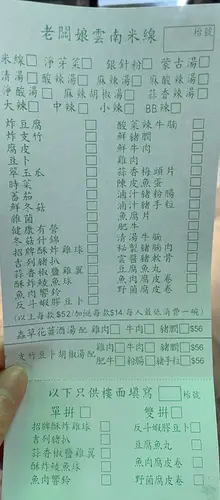 老闆娘雲南米線
枱號
米線□ 淨芽菜□ 銀針粉□ 蒙古湯□
清湯□ 酸辣湯□ 麻辣湯□ 麻酸辣湯□
淨酸湯□ 麻辣胡椒湯□ 蒜香辣湯□
大辣□ 中辣□ 小辣□ BB辣□
炸豆腐□ 酸菜辣牛腩□
炸支竹□ 鮮豬膶□
腐皮□ 鮮牛肉□
豆卜□ 雞肉□
翠玉瓜□ 蒜香梅頭片□
時菜□ 陳皮魚蛋□
蕃茄□ 滷汁豬粉腸□
鮮冬菇□ 滷汁豬手粒□
雜菌□ 魚腐片□
健康有營□ 肥牛□
冬菇針錦□ 清湯牛腩□
招牌酥炸雞球□ 秘製豬腩肉□
吉列豬扒□ 雲醬豬軟骨□
蒜香椒鹽雞翼□ 豆腐魚丸□
酥炸鯪魚球□ 魚肉腐皮卷□
魚肉響鈴□ 野菌腐皮卷□
反斗蝦膠豆卜□
(以上每款$52/加縂每款$14每人最低消費一碗)
蟲草花蓉酒湯配 雞肉□ 牛肉□ 豬膶□ $56
支竹豆卜胡椒湯配 雞肉□ 牛肉□ 豬膶□ $56
肥牛□ 粉腸□ 豬手粒□
以下只供樓面填寫 □ 枱號
單拼□ 雙拼□
招牌酥炸雞球 反斗蝦膠豆卜
吉列豬扒 豆腐魚丸
蒜香椒鹽雞翼 魚肉腐皮卷
酥炸鯪魚球 野菌腐皮卷
魚肉響鈴